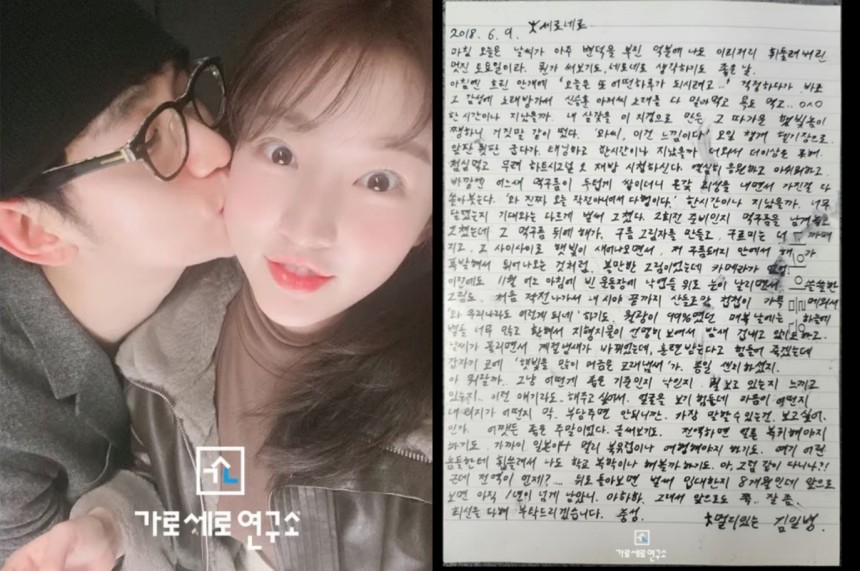 가로세로연구소
2018. 6. 9. 세로네로
마침 오늘은 날씨가 아주 변덕을 부린 덕분에 나도 이리저리 휘둘려버린
멋진 토요일이라. 뭔가 써보기도, 세로네로 생각하기도 좋은 날.
아침엔 흐린 안개에 '오늘은 또 어떤하루가 되시려고...' 걱정하다가 바로
그 감성에 노래방가서 신승훈 아저씨 노래를 다 잊어먹고 목도 먹고.. 0^0
한시간이나 지났을까. 내 살갗을 이 지경으로 만든 그 따가운 햇빛놈이
쨍하니 거짓말 같이 떴다. '와씨, 이건 느낌이다' 오일 챙겨 테기장으로.
앞장 뒷판 굽다가. 태닝하고 한시간이나 지났을까 더워서 더이상은 못해.
점심먹고 무려 하트시그널 오 재방 시청하신다. 열심히 응원하고 아쉬워하고.
바깥엔 어느새 먹구름이 두텁게 쌓이더니 온갖 회생을 내면서 가진걸 다
쏟아붓는다. '와 진짜 오늘 작전아니여서 다행이다.' 한시간이나 지났을까. 너무
달렸는지 기대와는 다르게 벌써 그쳤다. 2회전 준비인지 먹구름을 남겨놓고
그쳤는데 그 먹구름 뒤에 해가. 구름 그림자를 만들고, 구르미는 더 까매
지고, 그 사이사이로 햇빛이 새어나오면서, 저 구름돼지 안에서 해가
폭발해서 튀어나오는 것처럼. 볼만한 그림이었는데 카메라가 없네.
이전에도 11월 어느 아침에 빈 운동장에 낙엽들 위로 눈이 날리면서 쓸쓸한
그림도. 처음 작전나가서 내 시야 끝까지 산등조람 겹겹이 가득 메워서
'와 우리나라도 이렇게 되네' 하기도. 월광이 99%였던 매복 날에는 하늘에
별들 너무 많고 환해서 지형지물이 선명히 보여서 밤새 겁내고 있기도하고.
날씨가 풀리면서 계절냄새가 바뀌었는데, 훈련받는다고 힘들어 죽겠는데
갑자기 코에 '햇빛을 많이 머금은 모래냄새'가. 몹일 센치하셨지.
아 뭐랄까.. 그냥 어떻게 좁은 기준인지 낙인지. 뭘 보고 있는지 느끼고
있는지.. 이런 얘기라도.. 해주고 싶어서. 얼굴을 보기 힘들네 마음이 어떤지
내 위치가 어떤지 막. 부담주면 안되니깐. 가장 말할수 있는건. 보고싶어.
인가. 어쨌든 좁은 주말이었다. 글써보기도. 전역하면 얼른 복귀해야지
하기도. 가까이 일본이나 멀리 북유럽이나 여행해야지 하기도. 여기 어린
놈들한테 휩쓸려서 나도 학교 복학이나 해볼까하기도. 아, 그럼 같이 다니나?!
근데 전역이 언제?.... 뒤로 돌아보면 벌써 입대한지 8개월인데 앞으로
보면 아직 1년이 넘게 남았니. 아하하. 그래서 앞으로도 쭉.. 잘 좀.
최선을 다해 부탁드리겠습니다. 충성.
멀리있는 김일병.
가로세로연구소